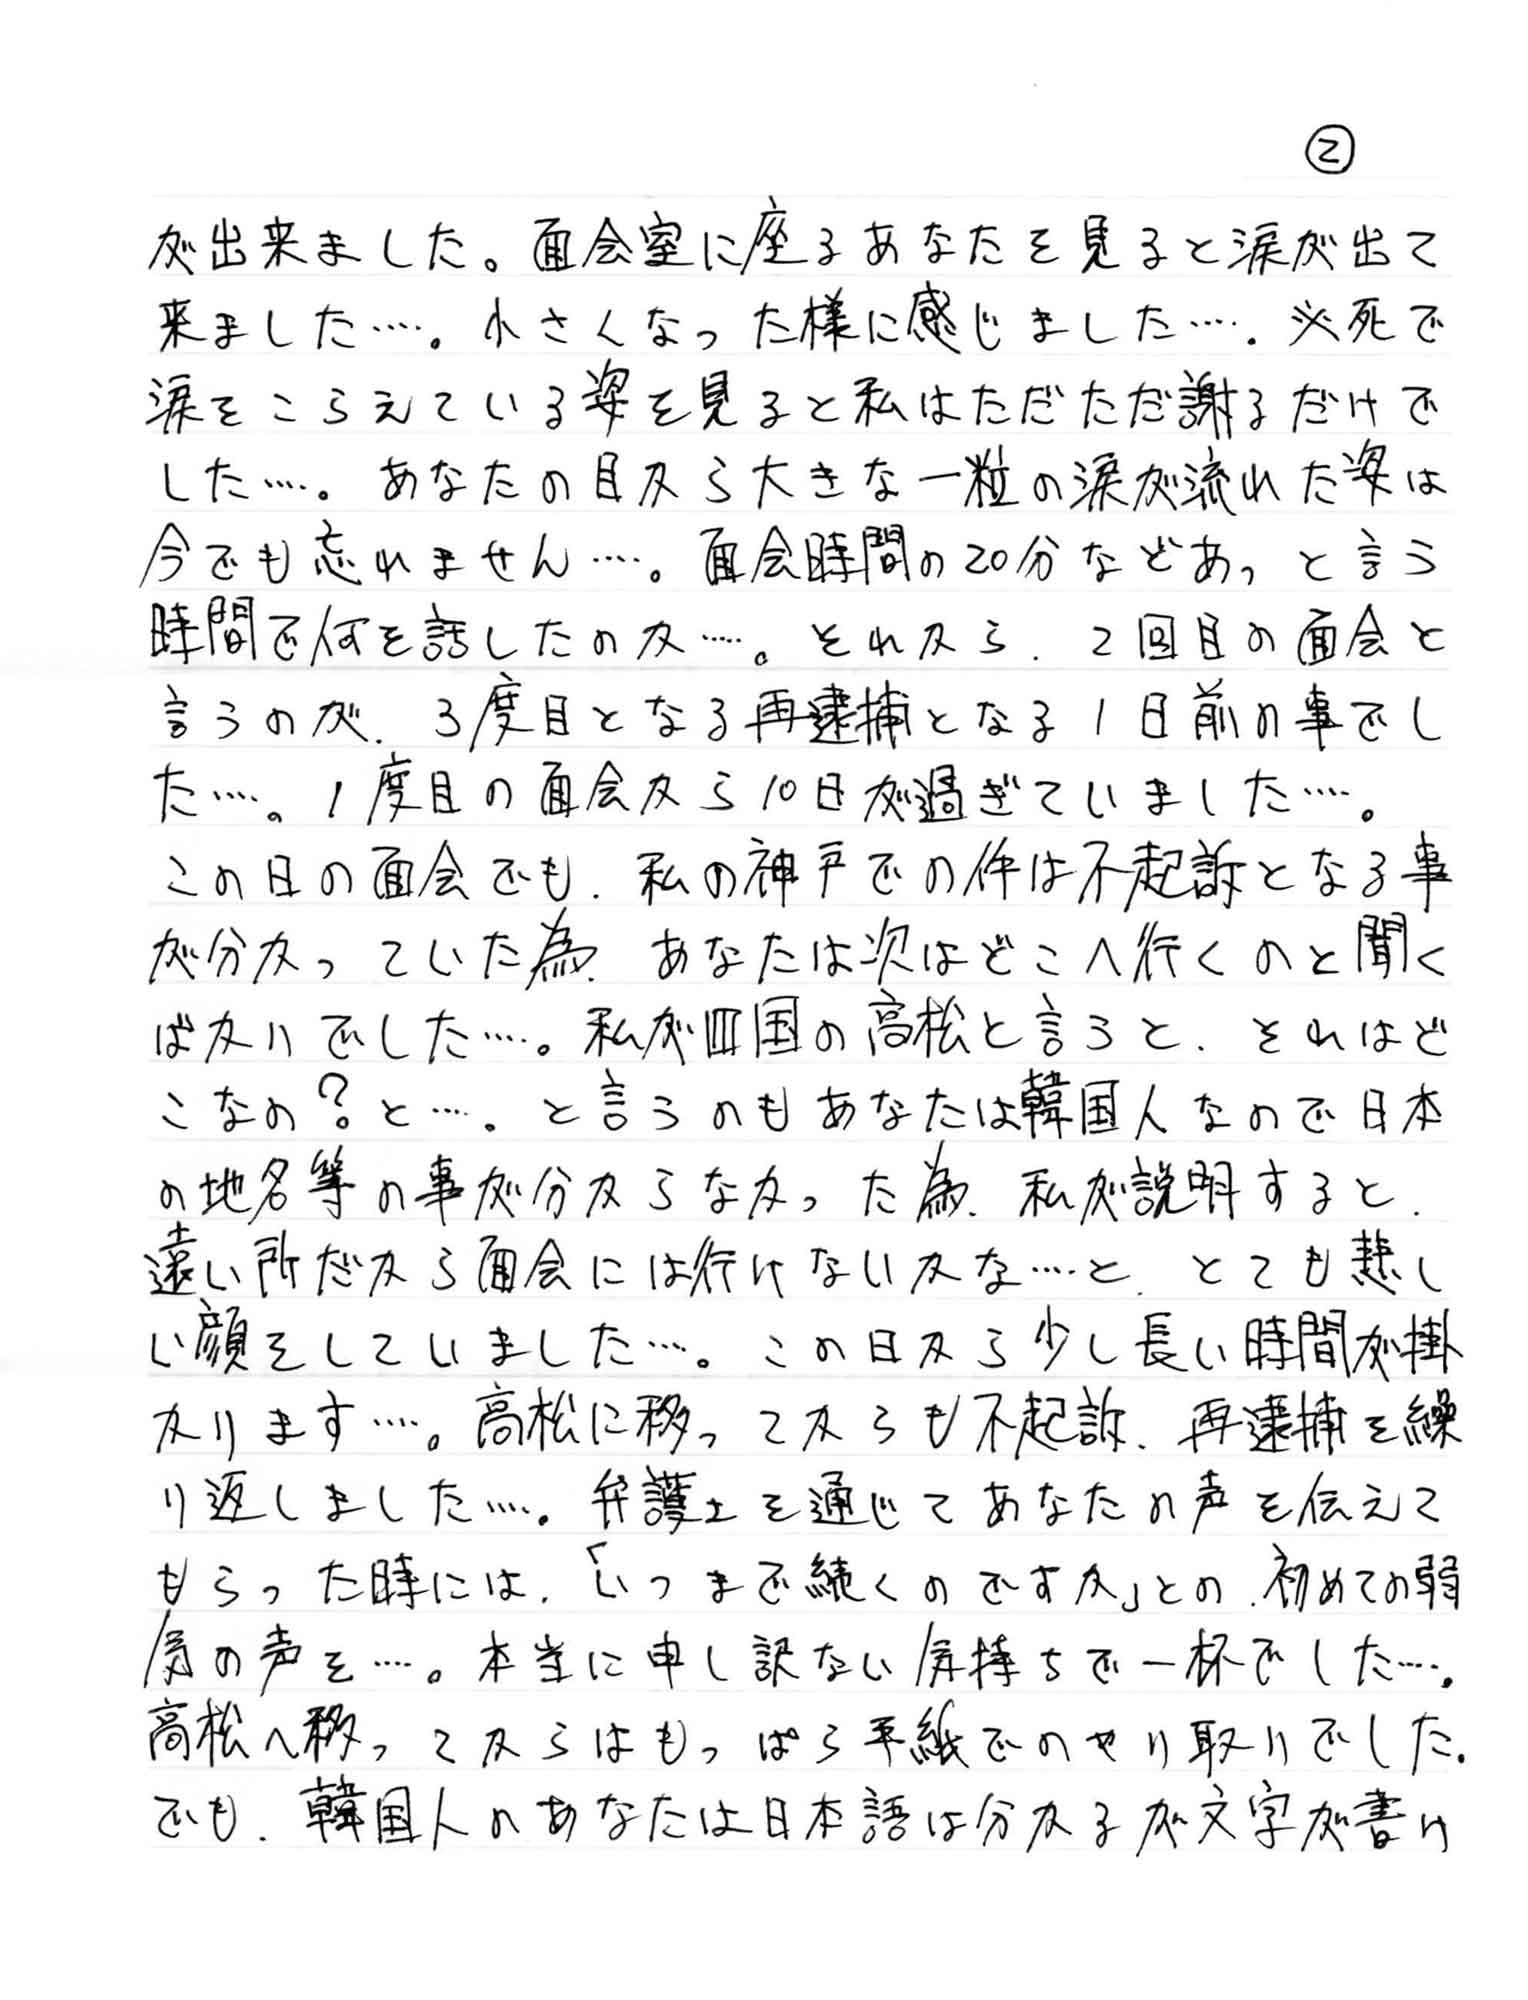 ②
が出来ました。面会室に座るあなたを見ると涙が出て
来ました…。小さくなった様に感じました…。必死で
涙をこらえている姿を見ると私はただただ謝るだけで
した…。あなたの目から大きな一粒の涙が流れた姿は
今でも忘れません…。面会時間の20分などあっと言う
時間で何を話したのか…。それから、2回目の面会と
言うのが、3度目となる再逮捕となる1日前の事でし
た…。1度目の面会から10日が過ぎていました…。
この日の面会でも、私の神戸での件は不起訴となる事
が分かっていた為、あなたは次はどこへ行くのと聞く
ばかりでした…。私が四国の高松と言うと、それはど
こなの?と…。と言うのもあなたは韓国人なので日本
の地名等の事が分からなかった為、私が説明すると、
遠い所だから面会には行けないかな…と、とても悲し
い顔をしていました…。この日から少し長い時間が掛
かります…。高松に移ってからも不起訴、再逮捕を繰
り返しました…。弁護士を通じてあなたの声を伝えて
もらった時には、「いつまで続くのですか」との、初めての弱
気の声を…。本当に申し訳ない気持ちで一杯でした…。
高松へ移ってからはもっぱら手紙でのやり取りでした。
でも、韓国人のあなたは日本語は分かるが文字が書け